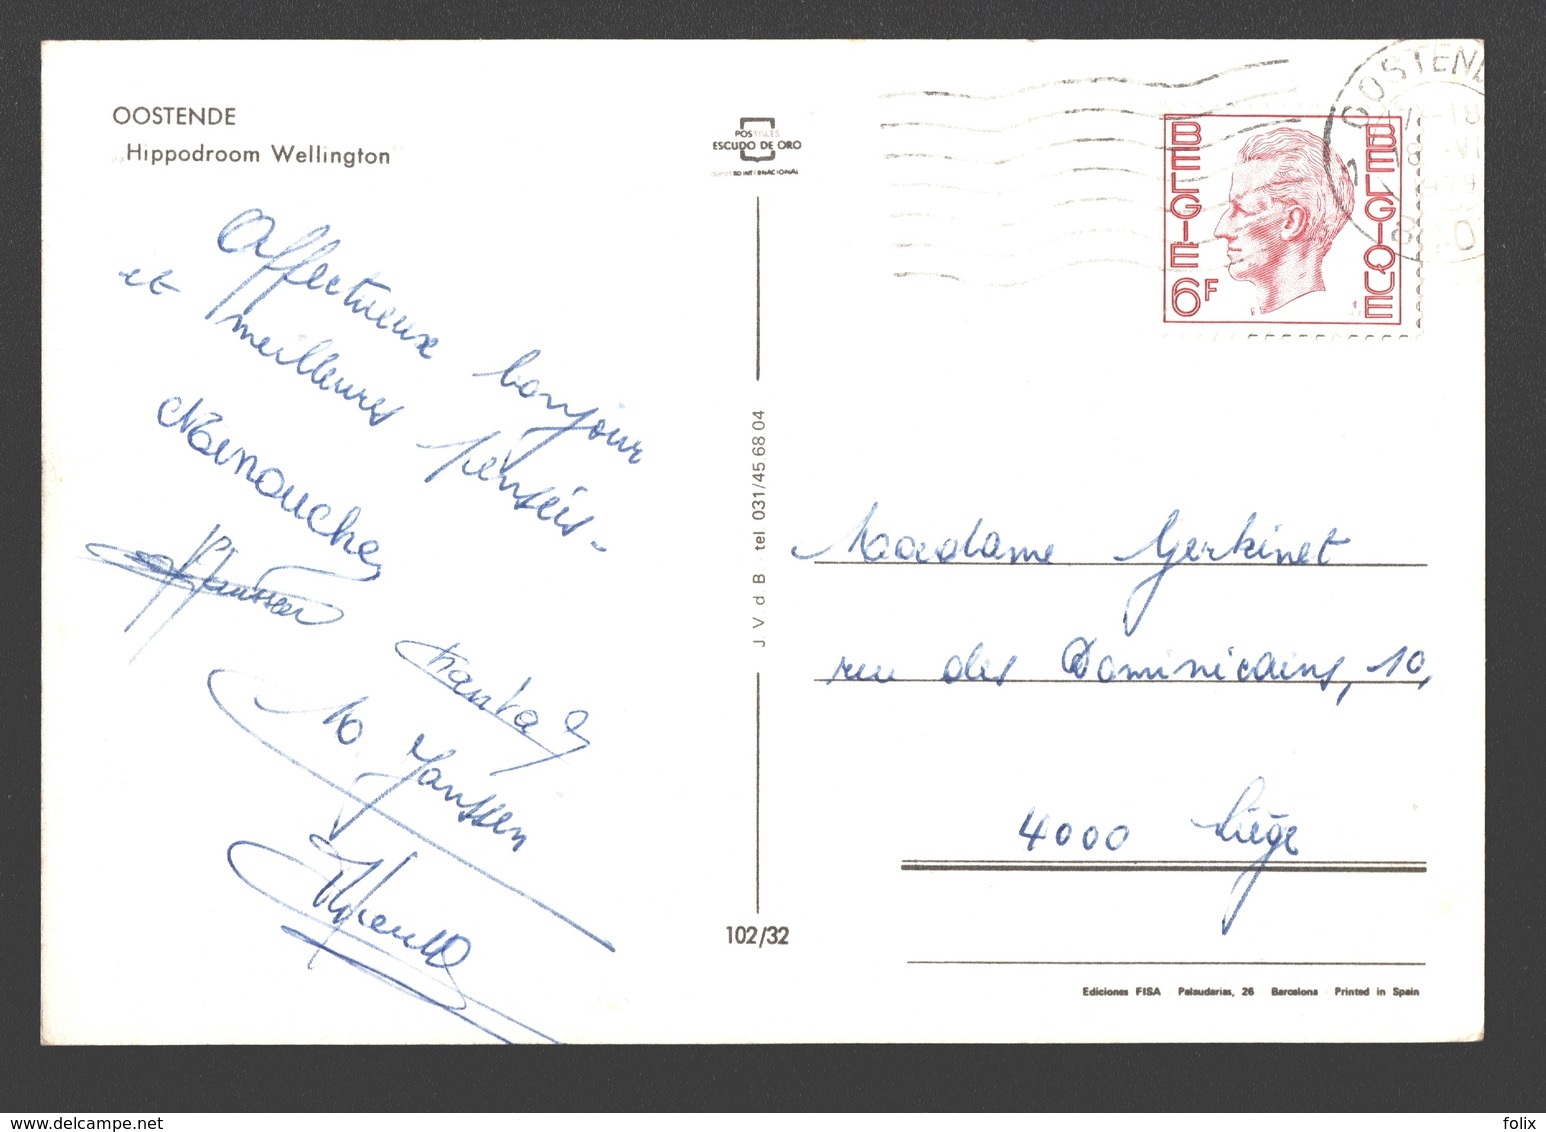 OOSTENDE
"Hippodroom Wellington"
POSTALES
ESCUDO DE ORO
Affectueux bonjour
et meilleures pensées-
Nanouche
Janssen
Chantal
M. Janssen
J. V. d. B. - tel 031/45 68 04
102/32
OOSTENDE
18
1979
BELGIE
BELGIQUE
6F
Madame Gerkinet
rue des Dominicains, 10,
4000 Liège
Ediciones FISA Palaudarias, 26 Barcelona Printed in Spain
folix